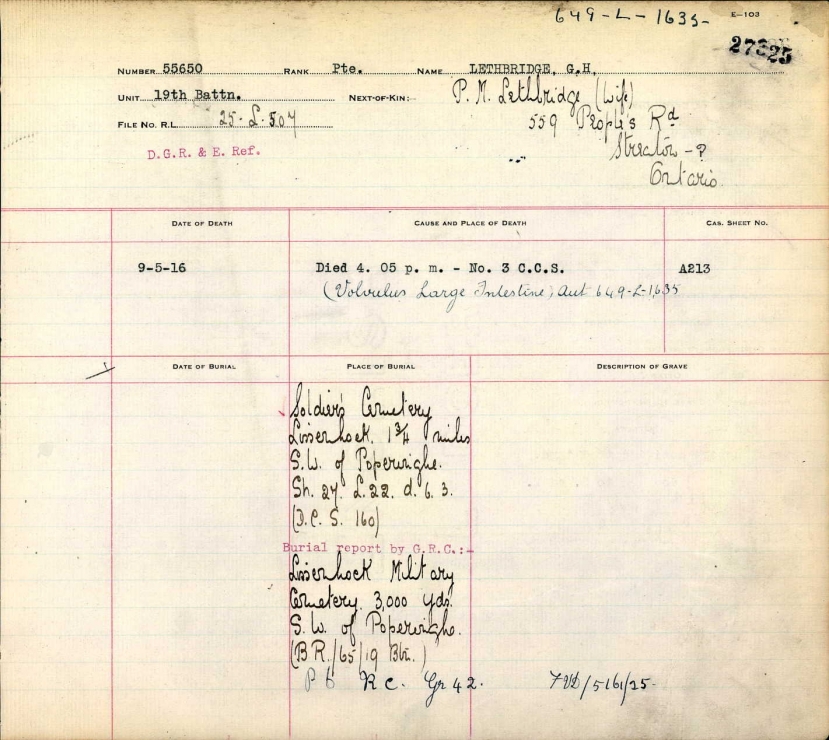 649-L-1635-
E-103
27325
NUMBER 55650 RANK Pte. NAME LETHBRIDGE, G.H.
UNIT 19th Battn. NEXT-OF-KIN:- P. M. Lethbridge (wife)
559 People's Rd
FILE NO. R.L. 25-L-507
D.G.R. & E. Ref.
Streator - ?
Ontario.
DATE OF DEATH CAUSE AND PLACE OF DEATH CAS. SHEET NO.
9-5-16 Died 4. 05 p. m. - No. 3 C.C.S. A213
(Volvulus Large Intestine) Aut 649-L-1635
DATE OF BURIAL PLACE OF BURIAL DESCRIPTION OF GRAVE
Soldier's Cemetery
Lissenhock. 1 3/4 miles
S.W. of Poperinghe.
Sh. 27. L.22. d. 6. 3.
(D.C.S. 160)
Burial report by G.R.C.:-
Lissenhock Military
Cemetery. 3,000 yds.
S.W. of Poperinghe.
(B.R./65/19 Btn.)
P 6 R C. Gr 42. /5161/25-